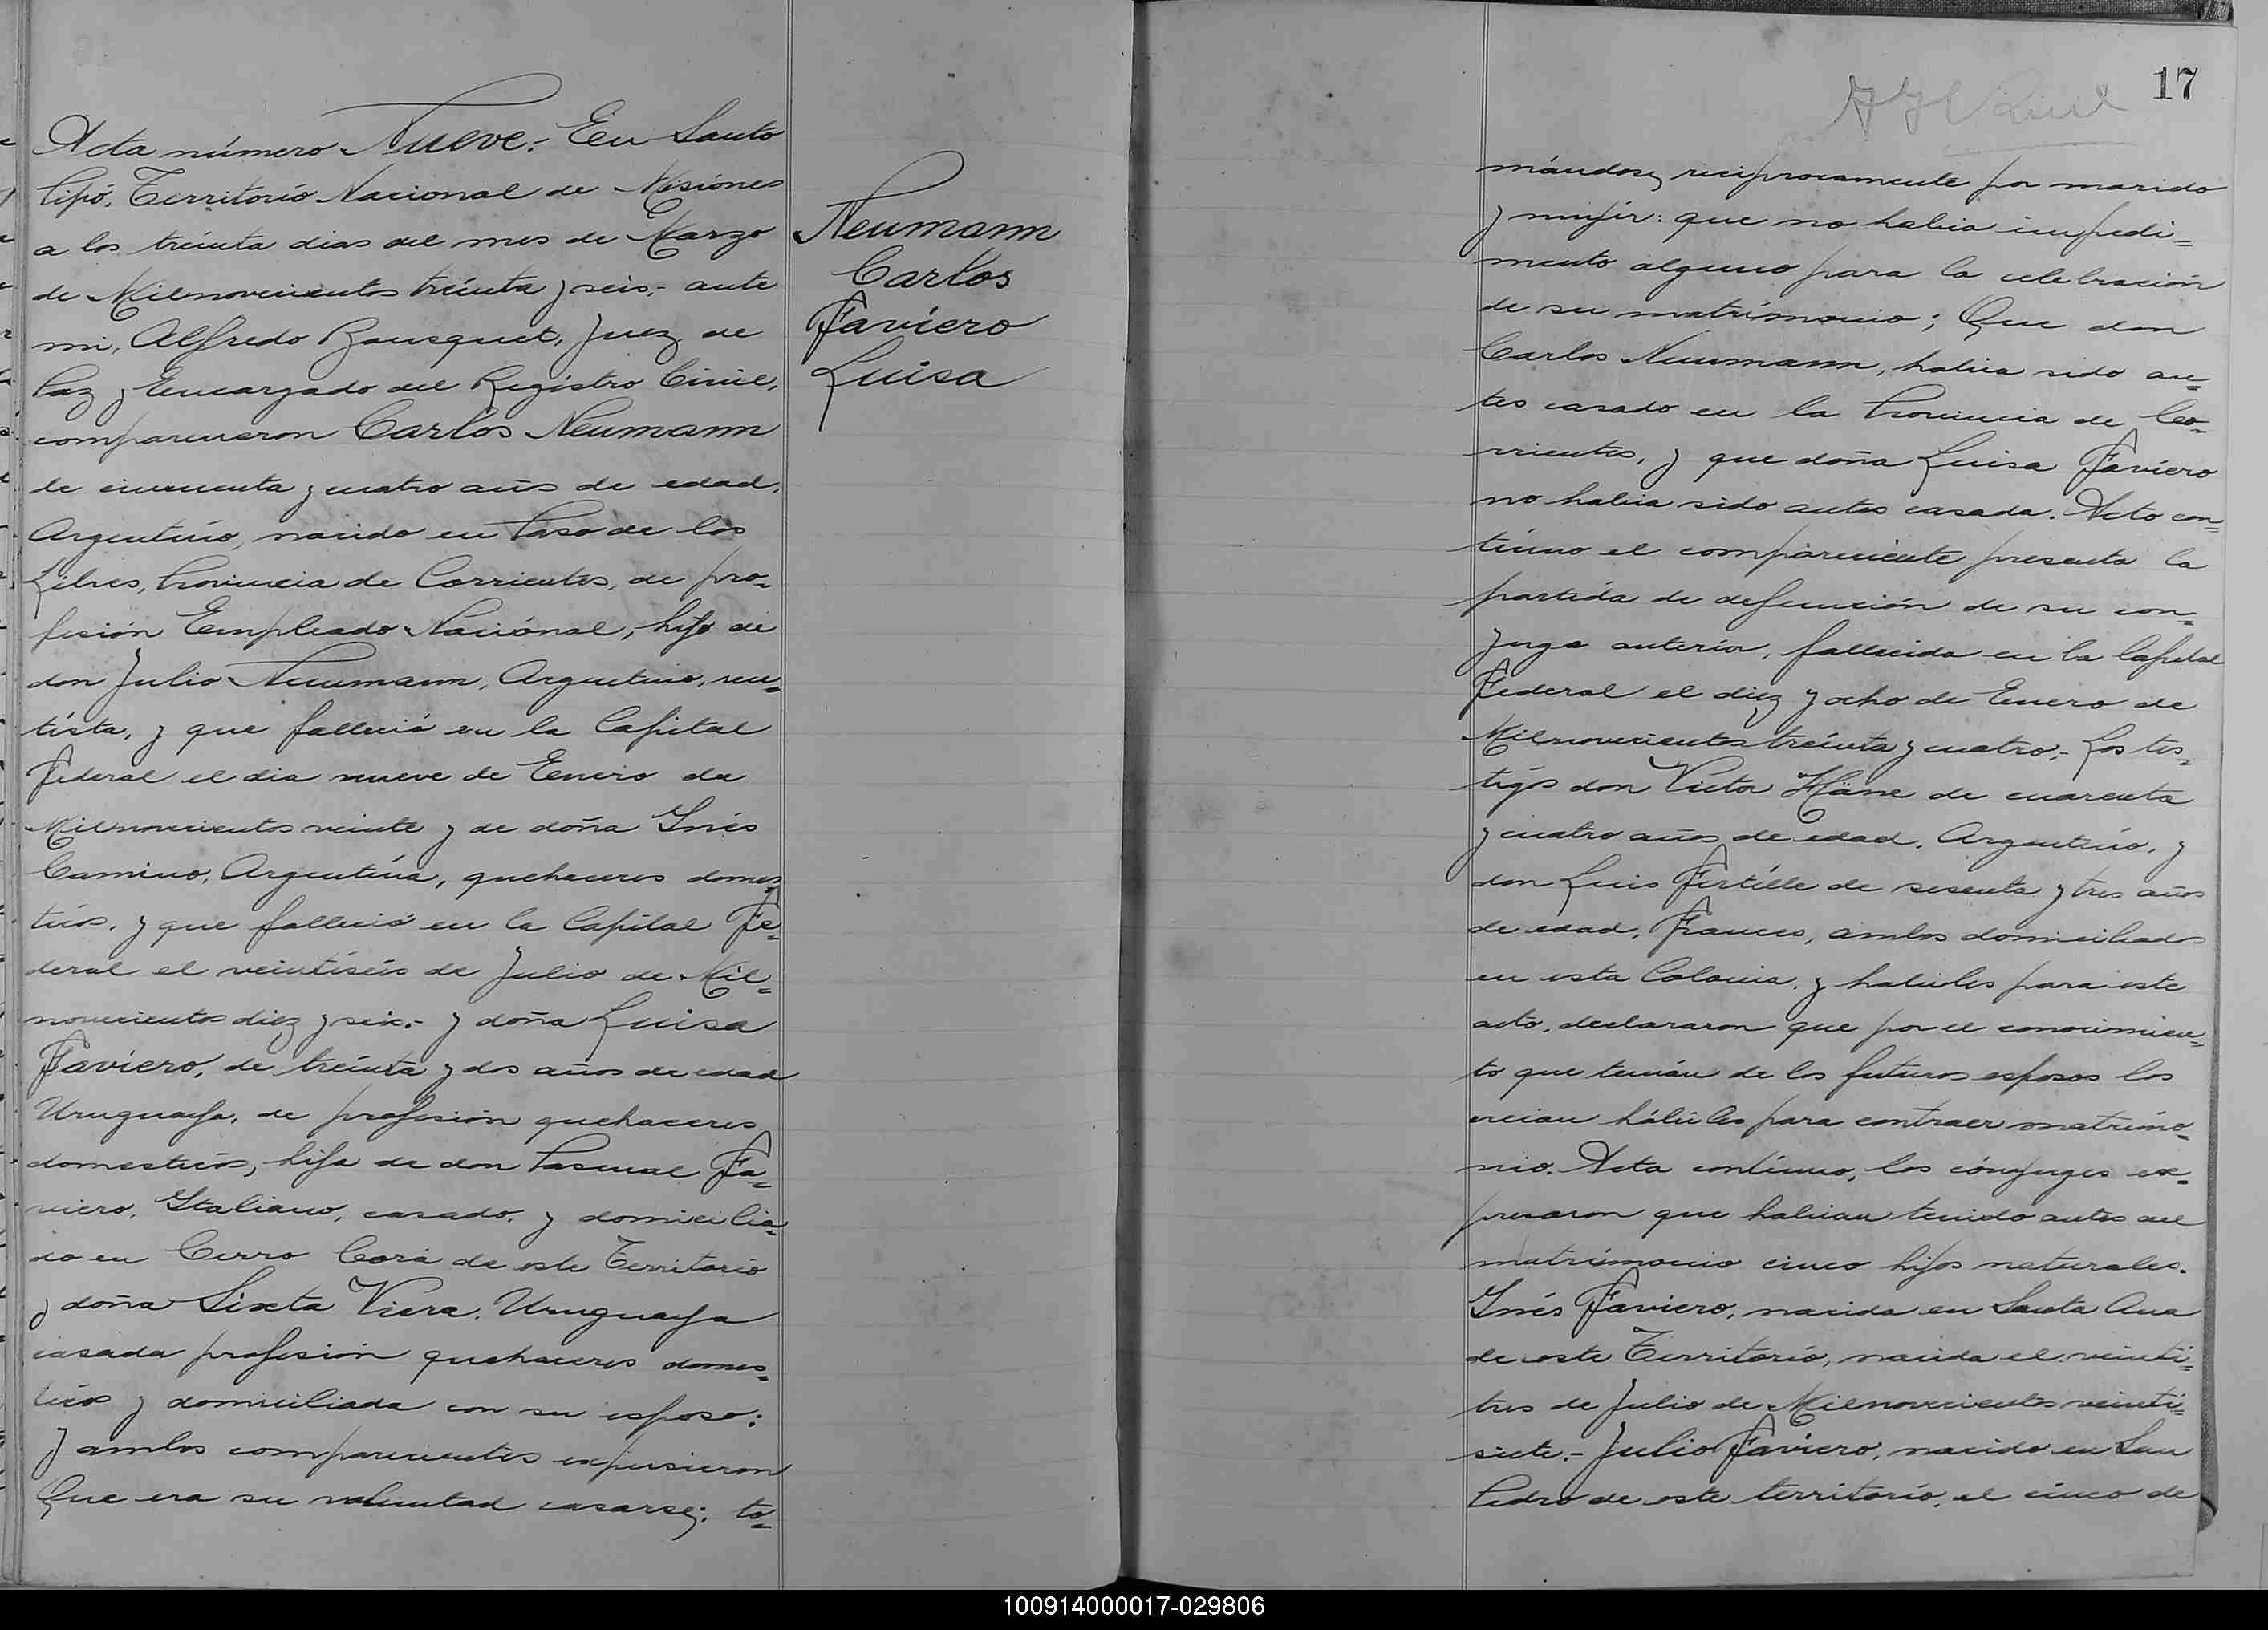 Acta número Nueve.- En Santo
Pipó, Territorio Nacional de Misiones
a los treinta dias del mes de Marzo
de Milnovecientos treinta y seis,- ante
mi, Alfredo Bousquet, Juez de
Paz y Encargado del Registro Civil,
comparecieron Carlos Neumann
de cincuenta y cuatro años de edad,
Argentino, nacido en Paso de los
Libres, Provincia de Corrientes, de pro=
fesión Empleado Nacional, hijo de
don Julio Neumann, Argentino, ren=
tista, y que falleció en la Capital
Federal el dia nueve de Enero de
Milnovecientos veinte y de doña Inés
Camino, Argentina, quehaceres domes=
ticos, y que falleció en la Capital Fe=
deral el veintiséis de Julio de Mil=
novecientos diez y seis.- y doña Luisa
Faviero, de treinta y dos años de edad
Uruguaya, de profesión quehaceres
domesticos, hija de don Pascual Fa=
viero, Italiano, casado, y domicilia=
do en Cerro Corá de este Territorio
y doña Sixta Viera, Uruguaya
casada profesión quehaceres domes=
ticos y domiciliada con su esposo:
y ambos comparecientes expusieron
Que era su voluntad casarse; to=
Neumann
Carlos
Faviero
Luisa
17
mándose reciprocamente por marido
y mujer: que no habia impedi=
mento alguno para la celebración
de su matrimonio; Que don
Carlos Neumann, habia sido an=
tes casado en la Provincia de Co=
rrientes, y que doña Luisa Faviero
no habia sido antes casada. Acto con=
tinuo el compareciente presenta la
partida de defunción de su con=
yuge anterior, fallecida en la Capital
Federal el diez y ocho de Enero de
Milnovecientos treinta y cuatro.- Los tes=
tigos don Victor Häne de cuarenta
y cuatro años de edad, Argentino, y
don Luis Fertille de sesenta y tres años
de edad, Frances, ambos domiciliados
en esta Colonia, y habiles para este
acto, declararon que por el conocimien=
to que tenián de los futuros esposos los
creian hábiles para contraer matrimo=
nio. Acto continuo, los cónyuges ex=
presaron que habian tenido antes del
matrimonio cinco hijos naturales.
Inés Faviero, nacida en Santa Ana
de este Territorio, nacida el veinti=
tres de Julio de Milnovecientos veinti=
siete.- Julio Faviero, nacido en San
Pedro de este territorio, el cinco de
100914000017-029806